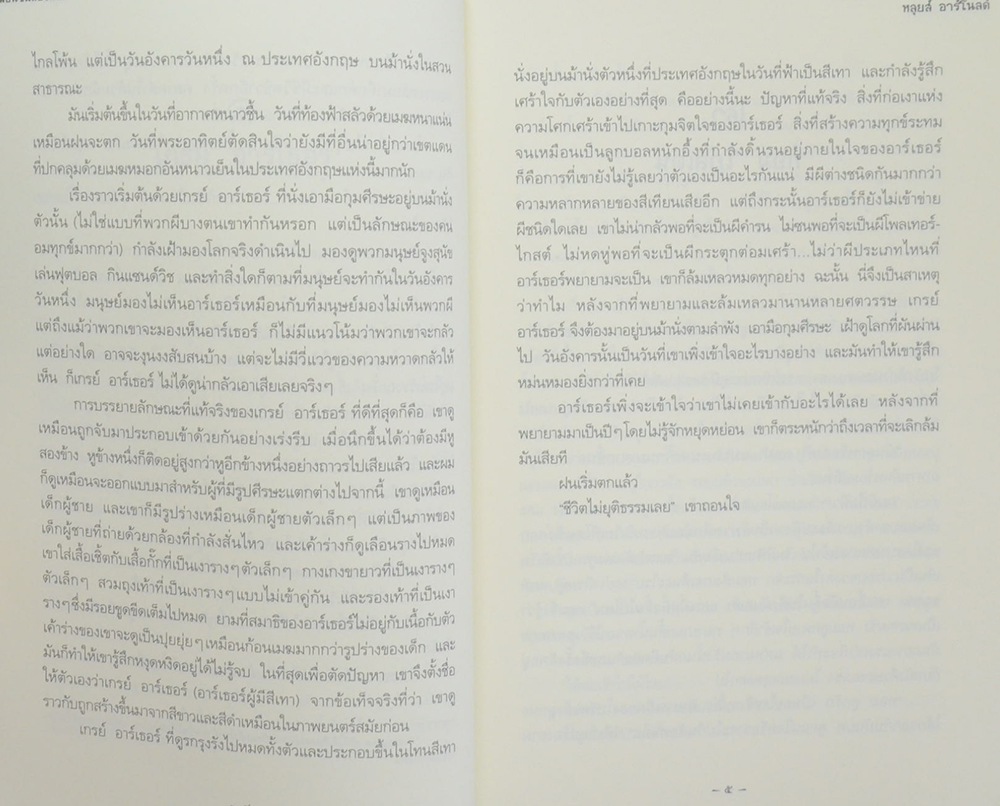 ไกลโพ้น แต่เป็นวันอังคารวันหนึ่ง ณ ประเทศอังกฤษ บนม้านั่งในสวน
สาธารณะ
มันเริ่มต้นขึ้นในวันที่อากาศหนาวชื้น วันที่ท้องฟ้าสลัวด้วยเมฆหนาแน่น
เหมือนฝนจะตก วันที่พระอาทิตย์ตัดสินใจว่ายังมีที่อื่นน่าอยู่กว่าเขตแดน
ที่ปกคลุมด้วยเมฆหมอกอันหนาวเย็นในประเทศอังกฤษแห่งนี้มากนัก
เรื่องราวเริ่มต้นด้วยเกรย์ อาร์เธอร์ ที่นั่งเอามือกุมศีรษะอยู่บนม้านั่ง
ตัวนั้น (ไม่ใช่แบบที่พวกผีบางตนเขาทำกันหรอก แต่เป็นลักษณะของคน
อมทุกข์มากกว่า) กำลังเฝ้ามองโลกจริงดำเนินไป มองดูพวกมนุษย์จูงสุนัข
เล่นฟุตบอล กินแซนด์วิช และทำสิ่งใดก็ตามที่มนุษย์จะทำกันในวันอังคาร
วันหนึ่ง มนุษย์มองไม่เห็นอาร์เธอร์เหมือนกับที่มนุษย์มองไม่เห็นพวกผี
แต่ถึงแม้ว่าพวกเขาจะมองเห็นอาร์เธอร์ ก็ไม่มีแนวโน้มว่าพวกเขาจะกลัว
แต่อย่างใด อาจจะงุนงงสับสนบ้าง แต่จะไม่มีวี่แววของความหวาดกลัวให้
เห็น ก็เกรย์ อาร์เธอร์ ไม่ได้ดูน่ากลัวเอาเสียเลยจริงๆ
การบรรยายลักษณะที่แท้จริงของเกรย์ อาร์เธอร์ ที่ดีที่สุดก็คือ เขาดู
เหมือนถูกจับมาประกอบเข้าด้วยกันอย่างเร่งรีบ เมื่อนึกขึ้นได้ว่าต้องมีหู
สองข้าง หูข้างหนึ่งก็ติดอยู่สูงกว่าหูอีกข้างหนึ่งอย่างถาวรไปเสียแล้ว และผม
ก็ดูเหมือนจะออกแบบมาสำหรับผู้ที่มีรูปศีรษะแตกต่างไปจากนี้ เขาดูเหมือน
เด็กผู้ชาย และเขาก็มีรูปร่างเหมือนเด็กผู้ชายตัวเล็กๆ แต่เป็นภาพของ
เด็กผู้ชายที่ถ่ายด้วยกล้องที่กำลังสั่นไหว และเค้าร่างก็ดูเลือนรางไปหมด
เขาใส่เสื้อเชิ้ตกับเสื้อกั๊กที่เป็นเงารางๆ ตัวเล็กๆ กางเกงขายาวที่เป็นเงารางๆ
ตัวเล็กๆ สวมถุงเท้าที่เป็นเงารางๆ แบบไม่เข้าคู่กัน และรองเท้าที่เป็นเงา
รางๆ ซึ่งมีรอยขูดขีดเต็มไปหมด ยามที่สมาธิของอาร์เธอร์ไม่อยู่กับเนื้อกับตัว
เค้าร่างของเขาจะดูเป็นปุยยุ่ยๆ เหมือนก้อนเมฆมากกว่ารูปร่างของเด็ก และ
มันก็ทำให้เขารู้สึกหงุดหงิดอยู่ได้ไม่รู้จบ ในที่สุดเพื่อตัดปัญหา เขาจึงตั้งชื่อ
ให้ตัวเองว่าเกรย์ อาร์เธอร์ (อาร์เธอร์ผู้มีสีเทา) จากข้อเท็จจริงที่ว่า เขาดู
ราวกับถูกสร้างขึ้นมาจากสีขาวและสีดำเหมือนในภาพยนตร์สมัยก่อน
เกรย์ อาร์เธอร์ ที่ดูรกรุงรังไปหมดทั้งตัวและประกอบขึ้นในโทนสีเทา
หลุยส์ อาร์โนลด์
นั่งอยู่บนม้านั่งตัวหนึ่งที่ประเทศอังกฤษในวันที่ฟ้าเป็นสีเทา และกำลังรู้สึก
เศร้าใจกับตัวเองอย่างที่สุด คืออย่างนี้นะ ปัญหาที่แท้จริง สิ่งที่ก่อเงาแห่ง
ความโศกเศร้าเข้าไปเกาะกุมจิตใจของอาร์เธอร์ สิ่งที่สร้างความทุกข์ระทม
จนเหมือนเป็นลูกบอลหนักอึ้งที่กำลังดิ้นรนอยู่ภายในใจของอาร์เธอร์
ก็คือการที่เขายังไม่รู้เลยว่าตัวเองเป็นอะไรกันแน่ มีผีต่างชนิดกันมากกว่า
ความหลากหลายของสีเทียนเสียอีก แต่ถึงกระนั้นอาร์เธอร์ก็ยังไม่เข้าข่าย
ผีชนิดใดเลย เขาไม่น่ากลัวพอที่จะเป็นผีคำรน ไม่ซนพอที่จะเป็นผีโพลเทอร์-
ไกสต์ ไม่หดหู่พอที่จะเป็นผีกระตุกต่อมเศร้า...ไม่ว่าผีประเภทไหนที่
อาร์เธอร์พยายามจะเป็น เขาก็ล้มเหลวหมดทุกอย่าง ฉะนั้น นี่จึงเป็นสาเหตุ
ว่าทำไม หลังจากที่พยายามและล้มเหลวมานานหลายศตวรรษ เกรย์
อาร์เธอร์ จึงต้องมาอยู่บนม้านั่งตามลำพัง เอามือกุมศีรษะ เฝ้าดูโลกที่ผันผ่าน
ไป วันอังคารนั้นเป็นวันที่เขาเพิ่งเข้าใจอะไรบางอย่าง และมันทำให้เขารู้สึก
หม่นหมองยิ่งกว่าที่เคย
อาร์เธอร์เพิ่งจะเข้าใจว่าเขาไม่เคยเข้ากับอะไรได้เลย หลังจากที่
พยายามมาเป็นปีๆ โดยไม่รู้จักหยุดหย่อน เขาก็ตระหนักว่าถึงเวลาที่จะเลิกล้ม
มันเสียที
ฝนเริ่มตกแล้ว
“ชีวิตไม่ยุติธรรมเลย” เขาถอนใจ
– ๕ –